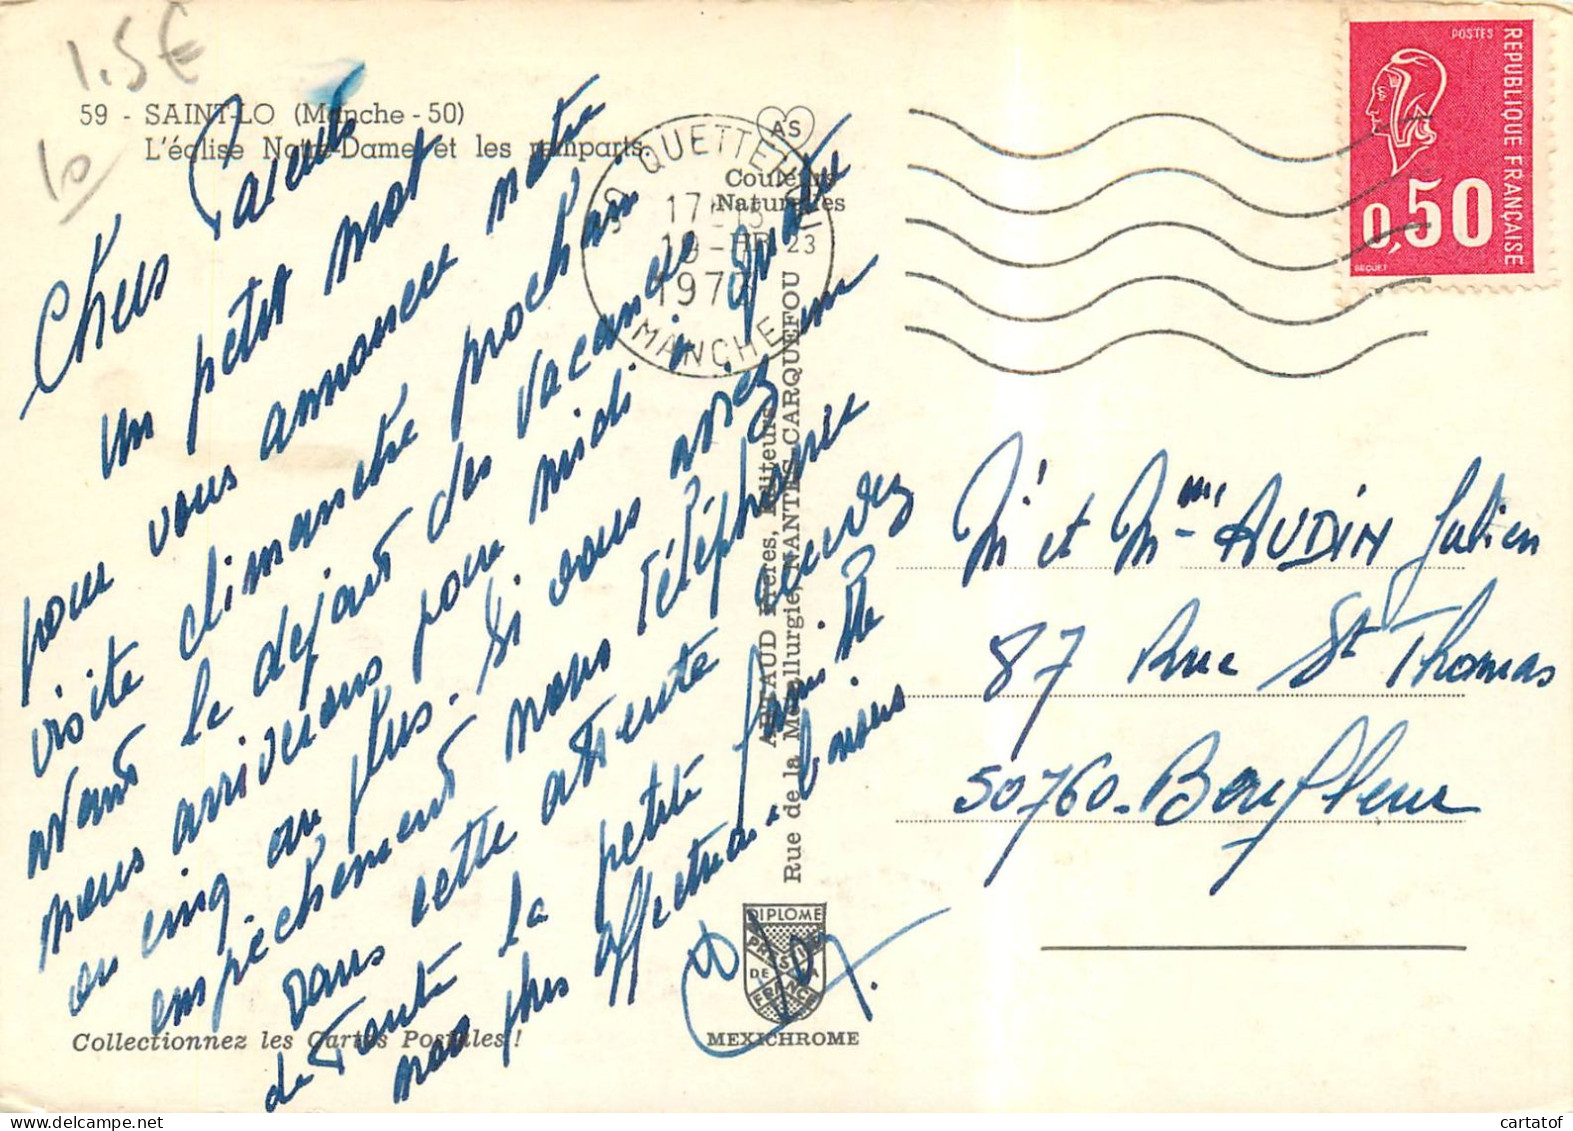 1.5€
10
59 - SAINT-LO (Manche - 50)
L'église Notre-Dame et les remparts.
AS
Couleurs
Naturelles
QUETTEHOU
17 H 15
19 - 23
197
MANCHE
POSTES
REPUBLIQUE FRANÇAISE
0,50
BEQUET
Chers Parents
un petit mot
pour vous annoncer notre
visite dimanche prochain
avant le depart des vacances
nous arriverons pour midi à quatre
ou cinq ou plus. Si vous avez un
empêchement nous téléphoner
Dans cette attente recevez
de toute la petite famille
nos plus affectueux baisers
Mr et Mme AUDIN Julien
87 Rue St Thomas
50760. Barfleur
ARTAUD Frères, Editeurs
Rue de la Métallurgie, NANTES-CARQUEFOU
DIPLOME
PRESTIGE
DE LA
FRANCE
MEXICHROME
Collectionnez les Cartes Postales !
cartatof